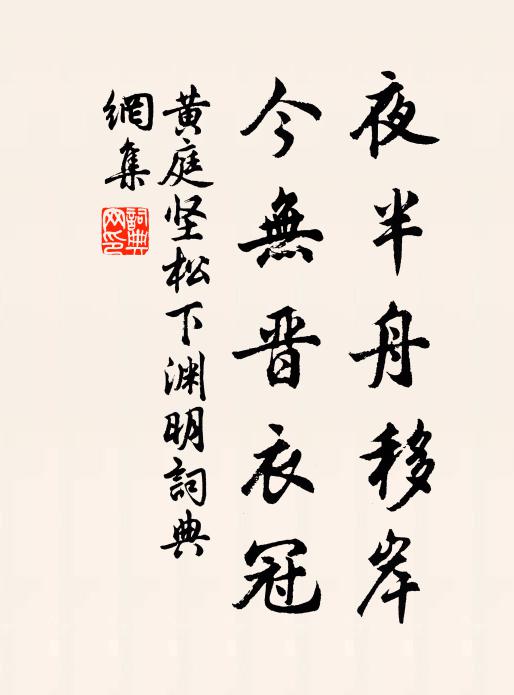 夜半舟移岸
今無晋衣冠
黄庭坚松下渊明詞典
網集
詞典
网印